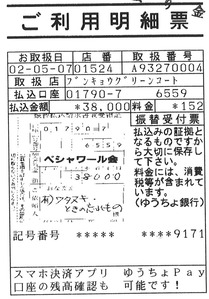 ご利用明細票
お取扱日 店番 取扱番号
02-05-07 01524 A93270004
取扱店 ブンキョウグリーンコート
払込口座 01790-7 6559
払込金額 *38,000 料金 *152
振替受付票
払込みの証拠
となるものですか
ら大切に保存し
て下さい。
料金には、消費
税等が含まれて
います。
(ゆうちょ銀行)
017907
6559
ペシャワール会
38000
記号番号 ***** ****9171
スマホ決済アプリ ゆうちょPay
口座の残高確認も可能です!